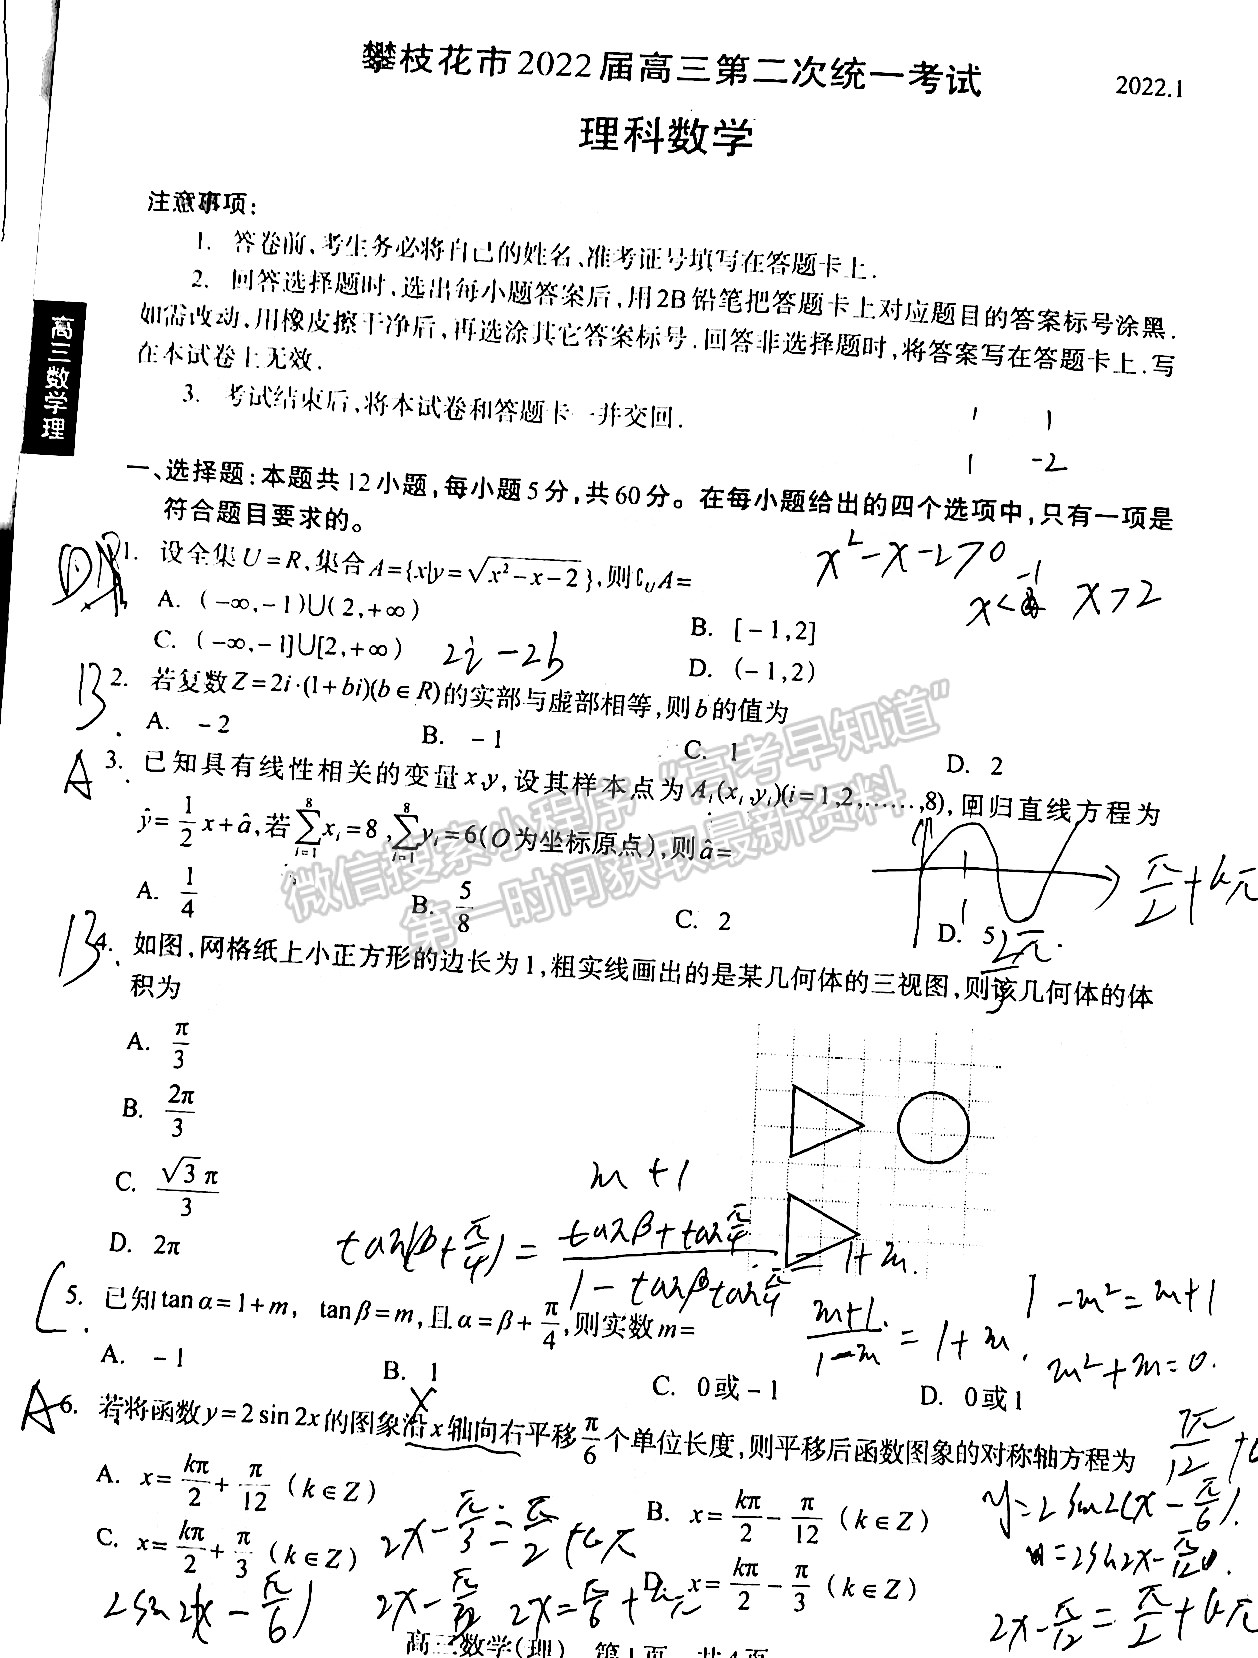 攀枝花市2022届高三第二次统一考试
2022.1
理科数学
高三数学理
注意事项：
1. 答卷前,考生务必将自己的姓名、准考证号填写在答题卡上.
2. 回答选择题时,选出每小题答案后,用2B铅笔把答题卡上对应题目的答案标号涂黑.
如需改动,用橡皮擦干净后,再选涂其它答案标号.回答非选择题时,将答案写在答题卡上.写
在本试卷上无效.
3. 考试结束后,将本试卷和答题卡一并交回.
1 1
1 -2
一、选择题:本题共12小题,每小题5分,共60分。在每小题给出的四个选项中,只有一项是
符合题目要求的。
1. 设全集U=R,集合A={x|y=√(x²-x-2)},则∁_U A=
x²-x-2>0
x< -1 x>2
A. (-∞,-1)∪(2,+∞)
B. [-1,2]
C. (-∞,-1]∪[2,+∞)
D. (-1,2)
2i-2b
B
2. 若复数Z=2i·(1+bi)(b∈R)的实部与虚部相等,则b的值为
A. -2
B. -1
C. 1
D. 2
A
3. 已知具有线性相关的变量x,y,设其样本点为A_i(x_i,y_i)(i=1,2,……,8),回归直线方程为
ŷ=1/2 x+â,若∑_{i=1}^{8}x_i=8,∑_{i=1}^{8}y_i=6(O为坐标原点),则â=
A. 1/4
B. 5/8
C. 2
D. 5
π/2+kπ
2π
微信搜索小程序"高考早知道"
第一时间获取最新资料
B
4. 如图,网格纸上小正方形的边长为1,粗实线画出的是某几何体的三视图,则该几何体的体
积为
A. π/3
B. 2π/3
C. √3π/3
D. 2π
m+1
tan(β+π/4)= (tanβ+tanπ/4)/(1-tanβtanπ/4) = 1+m.
C
5. 已知tanα=1+m, tanβ=m,且α=β+π/4,则实数m=
A. -1
B. 1
C. 0或-1
D. 0或1
(m+1)/(1-m)=1+m.
1-m²=m+1
m²+m=0.
A
6. 若将函数y=2sin2x的图象沿x轴向右平移π/6个单位长度,则平移后函数图象的对称轴方程为
A. x=kπ/2+π/12 (k∈Z)
B. x=kπ/2-π/12 (k∈Z)
C. x=kπ/2+π/3 (k∈Z)
D. x=kπ/2-π/3 (k∈Z)
7π/12
y=2sin2(x-π/6).
2x-π/3=π/2+kπ
2sin2(x-π/6)
2x-π/12=π/2+kπ
高三数学(理) 第1页 共4页